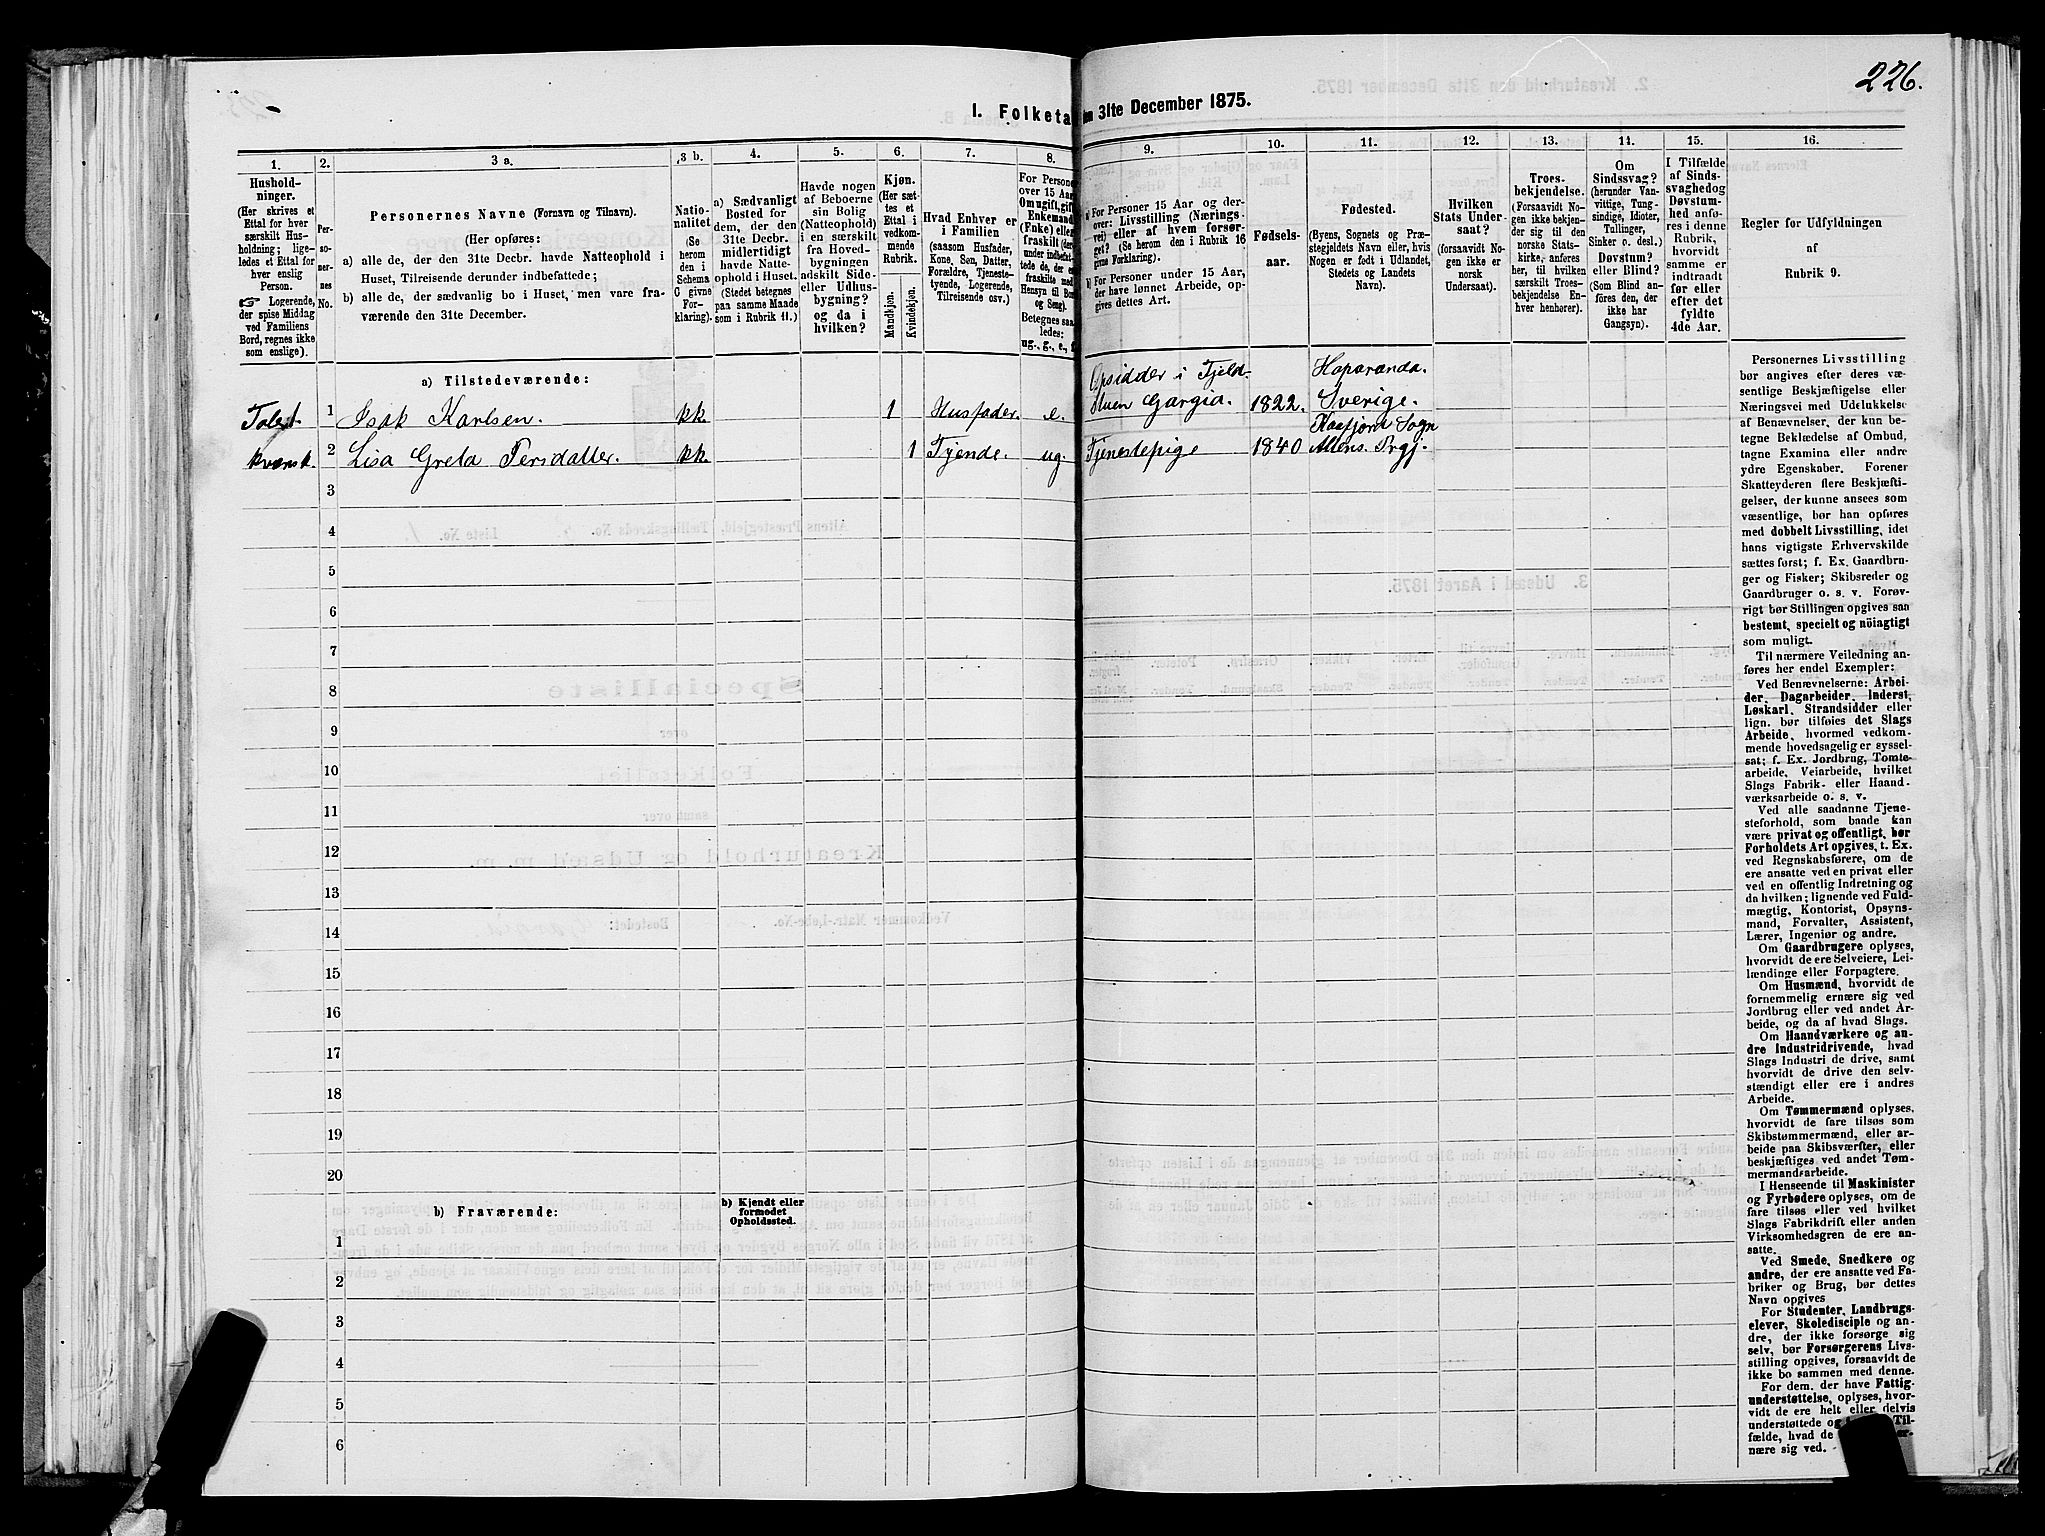 226.
I. Folketa
en 31te December 1875.
1.
2.
3 a.
3 b.
4.
5.
6.
7.
8.
9.
10.
11.
12.
13.
14.
15.
16.
Hushold-
ninger.
(Her skrives et
Ettal for hver
særskilt Hus-
holdning; lige-
ledes et Ettal for
hver enslig
Person.
☞ Logerende,
der spise Middag
ved Familiens
Bord, regnes ikke
som enslige.)
Per-
so-
ner-
nes
No.
Personernes Navne (Fornavn og Tilnavn).
(Her opføres:
a) alle de, der den 31te Decbr. havde Natteophold i
Huset, Tilreisende derunder indbefattede;
b) alle de, der sædvanlig bo i Huset, men vare fra-
værende den 31te December.
Natio-
nalitet
(Se
herom
den i
Schema
C givne
For-
klaring).
a) Sædvanligt
Bosted for
dem, der den
31te Decbr.
midlertidigt
havde Natte-
ophold i Huset.
(Stedet betegnes
paa samme Maade
som i Rubrik 11.)
Havde nogen
af Beboerne
sin Bolig
(Natteophold)
i en særskilt
fra Hoved-
bygningen
adskilt Side-
eller Udhus-
bygning?
og da i
hvilken?
Kjøn.
(Her sæt-
tes et
Ettal i
vedkom-
mende
Rubrik.
Mandkjøn.
Kvindekjøn.
Hvad Enhver er
i Familien
(saasom Husfader,
Kone, Søn, Datter,
Forældre, Tjeneste-
tyende, Logerende,
Tilreisende osv.)
For Personer
over 15 Aar:
Om ugift, gift,
Enkemand
(Enke) eller
fraskilt (de
under indbefat-
tede de, der e
fraskilte med
Hensyn til Bo
og Seng).
Betegnes saa
ledes:
ug., g., e., f.
a) For Personer 15 Aar og der-
over: Livsstilling (Nærings-
vei) eller af hvem forsør-
get? (Se herom den i Rubrik 16
givne Forklaring)
b) For Personer under 15 Aar,
der have lønnet Arbeide, op-
gives dettes Art.
Fødsels-
aar.
Fødested.
(Byens, Sognets og Præ-
stegjeldets Navn eller, hvis
Nogen er født i Udlandet,
Stedets og Landets
Navn).
Hvilken
Stats Under-
saat?
(forsaavidt No-
gen ikke er
norsk
Undersaat).
Troes-
bekjendelse.
(Forsaavidt No-
gen ikke bekjen-
der sig til den
norske Stats-
kirke, anføres
her, til hvilken
særskilt Troes-
bekjendelse En-
hver henhører).
Om
Sindssvag?
(herunder Van-
vittige, Tung-
sindige, Idioter,
Tullinger,
Sinker o. desl.)
Døvstum?
eller Blind?
(Som Blind an-
føres den, der
ikke har
Gangsyn).
I Tilfælde
af Sinds-
svaghed og
Døvstum-
hed anfø-
res i denne
Rubrik,
hvorvidt
samme er
indtraadt
før eller
efter det
fyldte
4de Aar.
Regler for Udfyldningen
af
Rubrik 9.
a) Tilstedeværende:
Talest. 1 Isak Karlsen. kk. 1 Husfader. e. Opsidder i Fjeld- stuen Gargia. 1822. Haparanda. Sverige.
kvænsk. 2 Lisa Greta Persdatter. kk. 1 Tjende. ug. Tjenestepige 1840 Kaafjord Sogn Altens Prgj.
3
4
5
6
7
8
9
10
11
12
13
14
15
16
17
18
19
20
b) Fraværende:
b) Kjendt eller
formodet
Opholdssted.
1
2
3
4
5
6
Personernes Livsstilling
bør angives efter deres væ-
sentlige Beskjæftigelse eller
Næringsvei med Udelukkelse
af Benævnelser, der kun be-
tegne Beklædelse af Ombud,
tagne Examina eller andre
ydre Egenskaber. Forener
Skatteyderen flere Beskjæfti-
gelser, der kunne ansees som
væsentlige, bør han opføres
med dobbelt Livsstilling, idet
hans vigtigste Erhvervskilde
sættes først; f. Ex. Gaardbru-
ger og Fisker; Skibsreder og
Gaardbruger o. s. v. Forøv-
rigt bør Stillingen opgives saa
bestemt, specielt og nöiagtigt
som muligt.
Til nærmere Veiledning an-
føres her endel Exempler:
Ved Benævnelserne: Arbei-
der, Dagarbeider, Inderst,
Løskarl, Strandsidder eller
lign. bør tilføies det Slags
Arbeide, hvormed vedkom-
mende hovedsagelig er syssel-
sat; f. Ex. Jordbrug, Tomte-
arbeide, Veiarbeide, hvilket
Slags Fabrik- eller Haand-
værksarbeide o. s. v.
Ved alle saadanne Tjene-
steforhold, som baade kan
være privat og offentligt, bør
Forholdets Art opgives, t. Ex.
ved Regnskabsførere, om de
ere ansatte ved en privat eller
ved en offentlig Indretning og
da hvilken; lignende ved Fuld-
mægtig, Kontorist, Opsyns-
mand, Forvalter, Assistent,
Lærer, Ingeniør og andre.
Om Gaardbrugere oplyses,
hvorvidt de ere Selveiere, Lei-
lændinge eller Forpagtere.
Om Husmænd, hvorvidt de
fornemmelig ernære sig ved
Jordbrug eller ved andet Ar-
beide, og da af hvad Slags.
Om Haandværkere og an-
dre Industridrivende, hvad
Slags Industri de drive, samt
hvorvidt de drive den selv-
stændigt eller ere i andres
Arbeide.
Om Tømmermænd oplyses,
hvorvidt de fare tilsøs som
Skibstømmermænd, eller ar-
beide paa Skibsværfter, eller
beskjæftiges ved andet Tøm-
mermandsarbeide.
I Henseende til Maskinister
og Fyrbødere oplyses, om de
fare tilsøs eller ved hvilket
Slags Fabrikdrift eller anden
Virksomhedsgren de ere an-
satte.
Ved Smede, Snedkere og
andre, der ere ansatte ved Fa-
briker og Brug, bør dettes
Navn opgives
For Studenter, Landbrugs-
elever, Skoledisciple og an-
dre, der ikke forsørge sig
selv, bør Forsørgerens Livs-
stilling opgives, forsaavidt de
ikke bo sammen med denne.
For dem. der have Fattig-
understøttelse, oplyses, hvor-
vidt de ere helt eller delvis
understøttede og Til-
fælde, hvad de er-
nære sig ved.